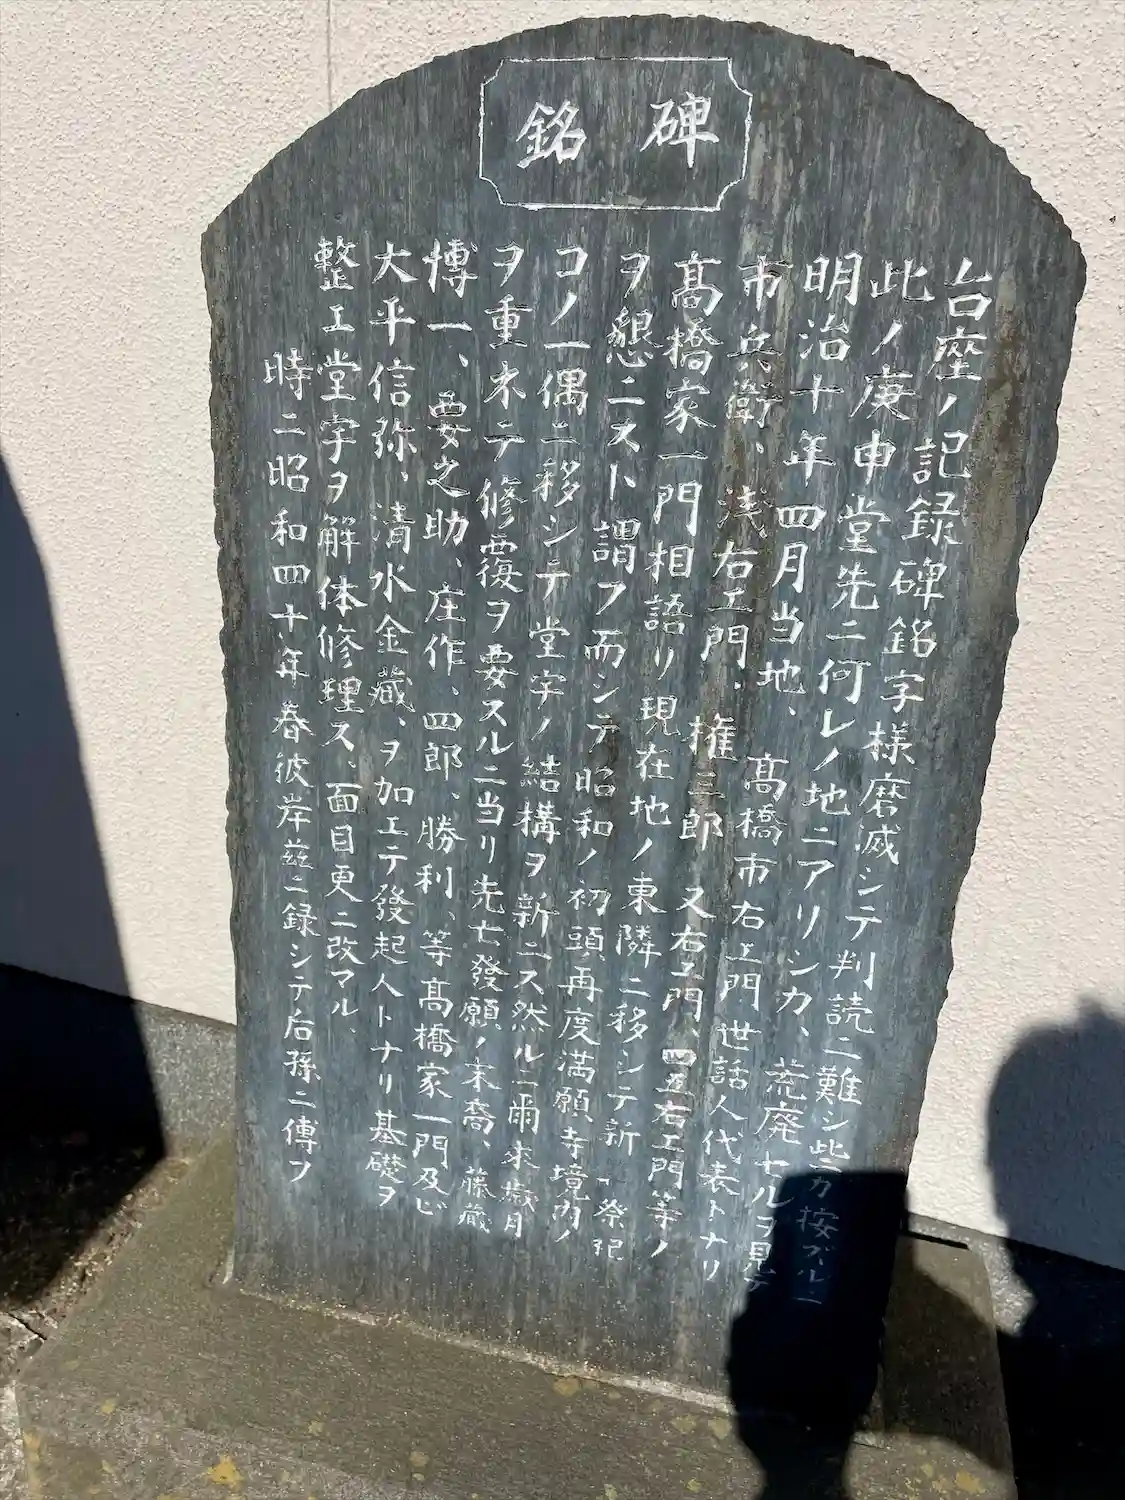 碑銘
台座ノ記録碑銘字様磨滅シテ判読ニ難シ些カ按ズルニ
此ノ庚申堂先ニ何レノ地ニアリシカ、荒廃セルヲ見テ
明治十年四月当地、髙橋市右エ門世話人代表トナリ
市兵衛、浅右エ門、権三郎又右エ門、四五右エ門等ノ
髙橋家一門相語リ現在地ノ東隣ニ移シテ新 祭祀
ヲ懇ニスト、謂フ而シテ昭和ノ初頭再度満願寺境内ノ
コノ一偶ニ移シテ堂宇ノ結構ヲ新ニス然ルニ爾来歳月
ヲ重ネテ修覆ヲ要スルニ当リ先亡發願ノ末裔、藤蔵、
博一、要之助、庄作、四郎、勝利、等髙橋家一門及ビ
大平信弥、清水金蔵、ヲ加エテ發起人トナリ基礎ヲ
整エ堂宇ヲ解体修理ス、面目更ニ改マル、
時ニ昭和四十年春彼岸茲ニ録シテ后孫ニ傳ヲ